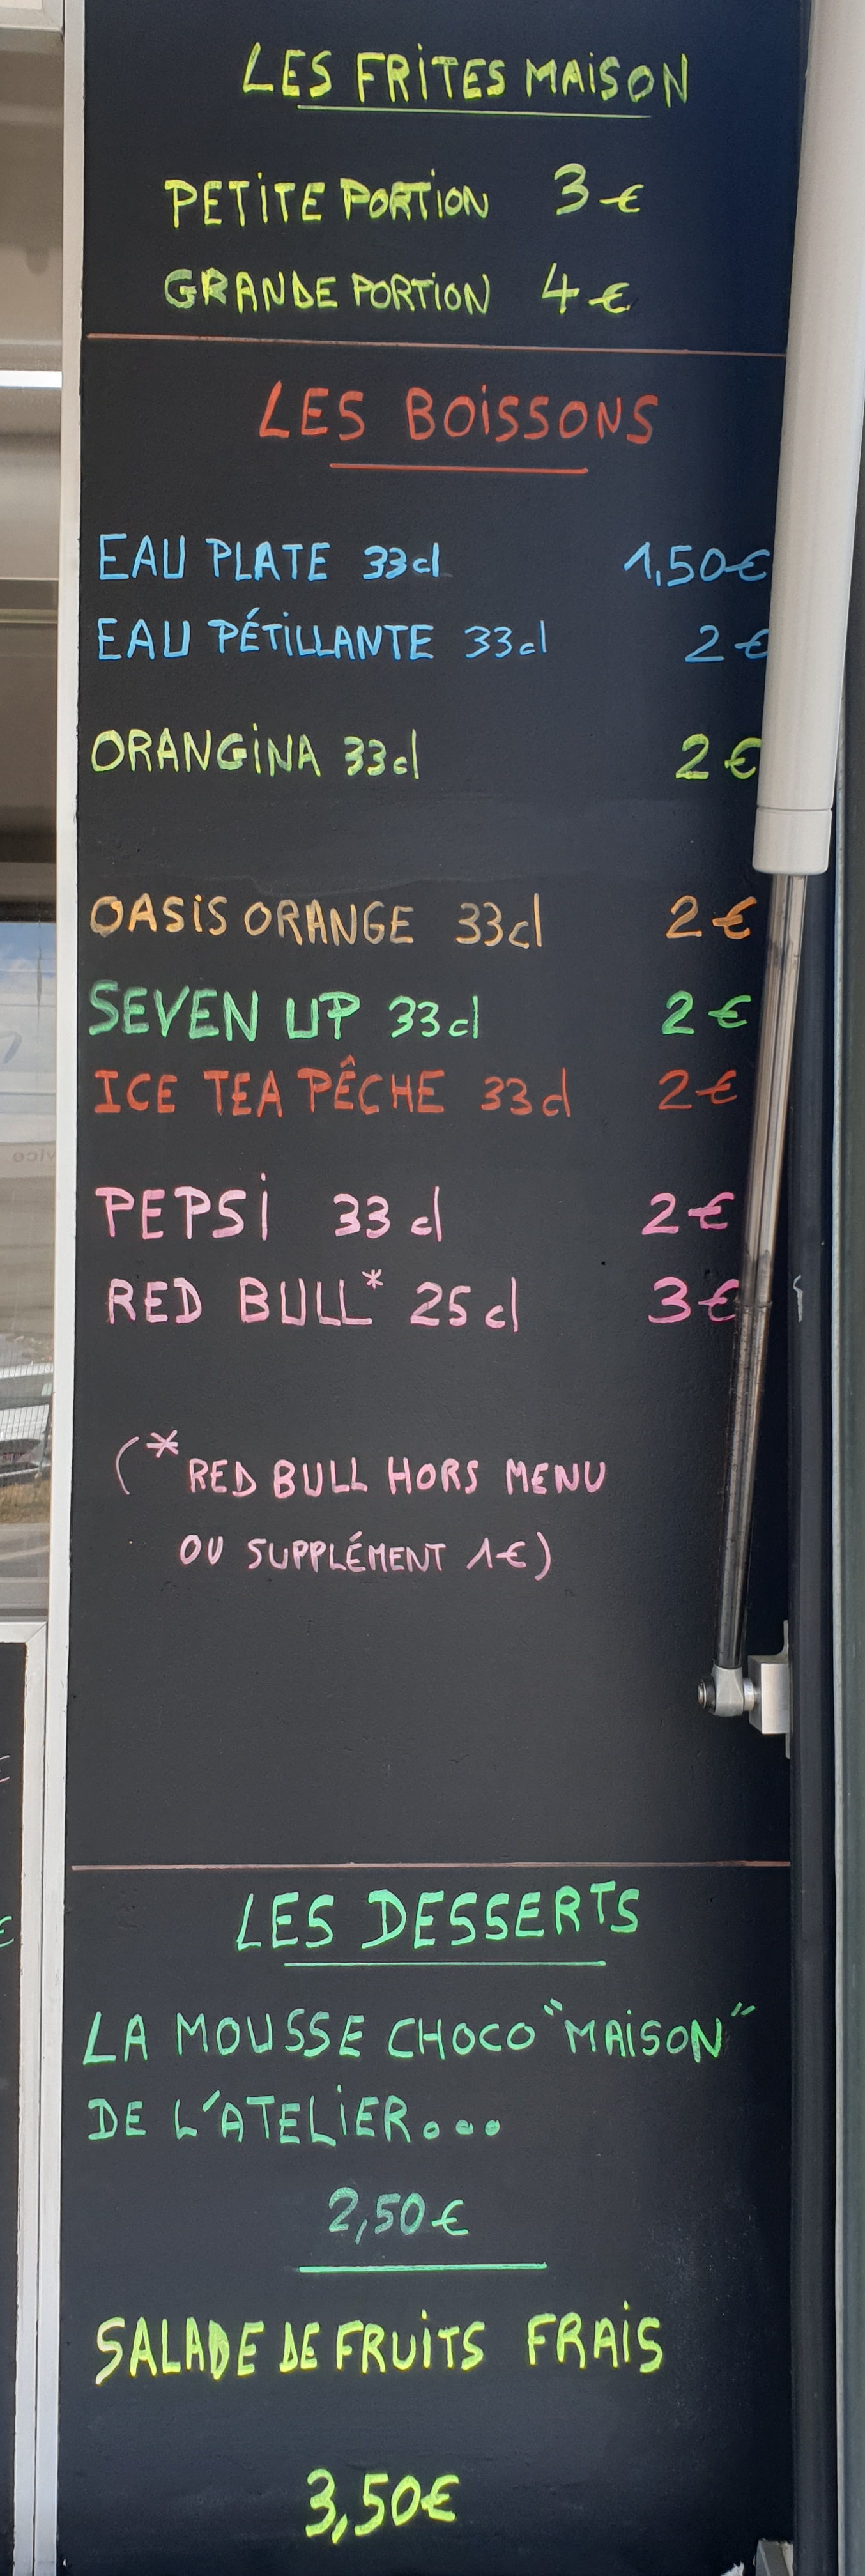 LES FRITES MAISON
PETITE PORTION 3€
GRANDE PORTION 4€
LES BOISSONS
EAU PLATE 33cl 1,50€
EAU PÉTILLANTE 33cl 2€
ORANGINA 33cl 2€
OASIS ORANGE 33cl 2€
SEVEN UP 33cl 2€
ICE TEA PÊCHE 33cl 2€
PEPSI 33cl 2€
RED BULL* 25cl 3€
(*RED BULL HORS MENU
OU SUPPLÉMENT 1€)
LES DESSERTS
LA MOUSSE CHOCO "MAISON"
DE L'ATELIER...
2,50€
SALADE DE FRUITS FRAIS
3,50€